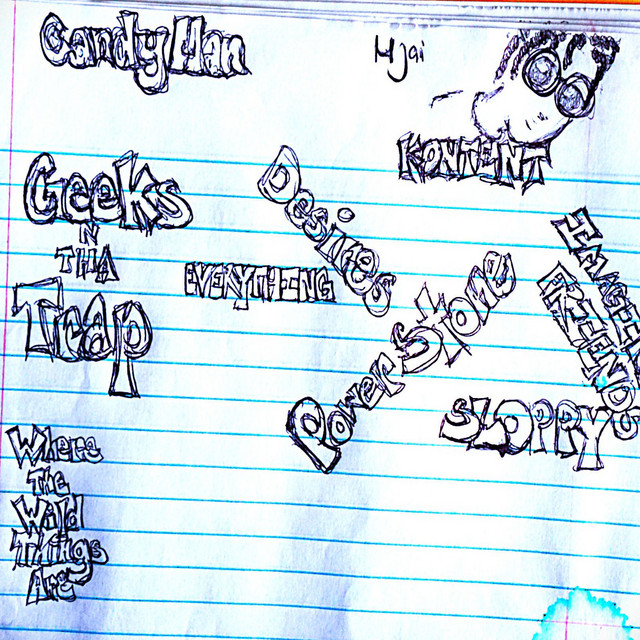 CandyMan
Hjai
KONTENT
Geeks
N
THA
Trap
EVERYTHING
Desires
Power Stone
FRIENDS
SLOPPY
Where
The
Wild
Things
Are